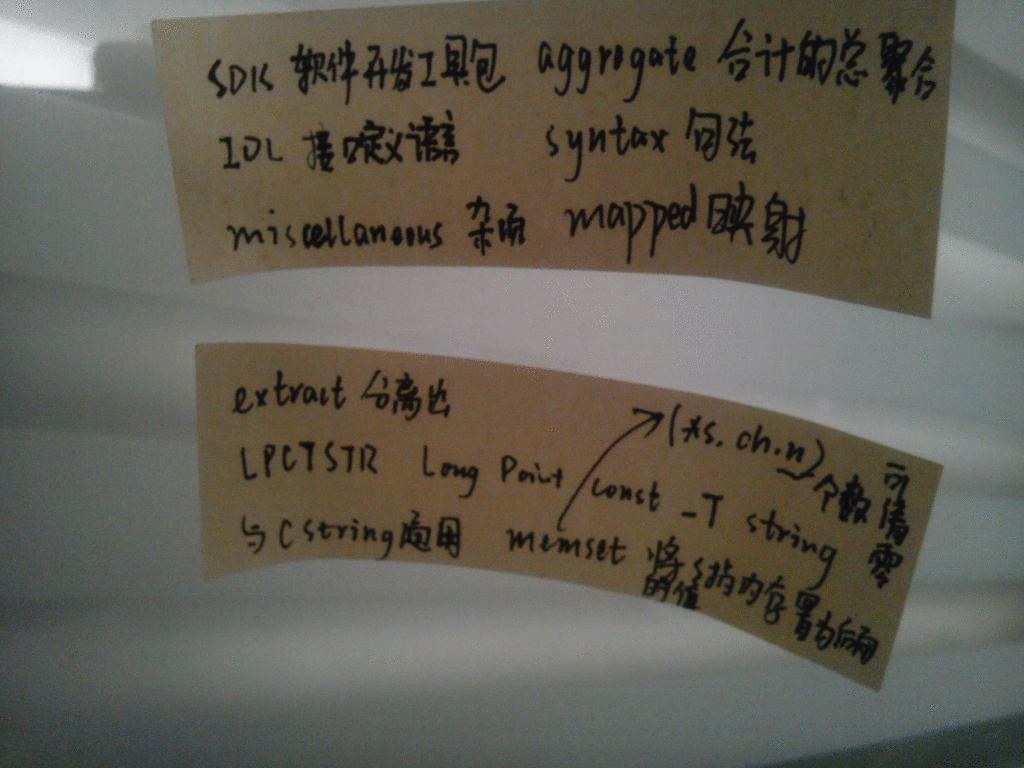 SDK 软件开发工具包 aggregate 合计的总 聚合
IDL 接口定义语言 syntax 句法
miscellaneous 杂项 mapped 映射
extract 分离出
(*s, ch, n) 个数 可清零
LPCTSTR Long Point const _T string
与CString通用 memset 将s指内存置为后面
的值